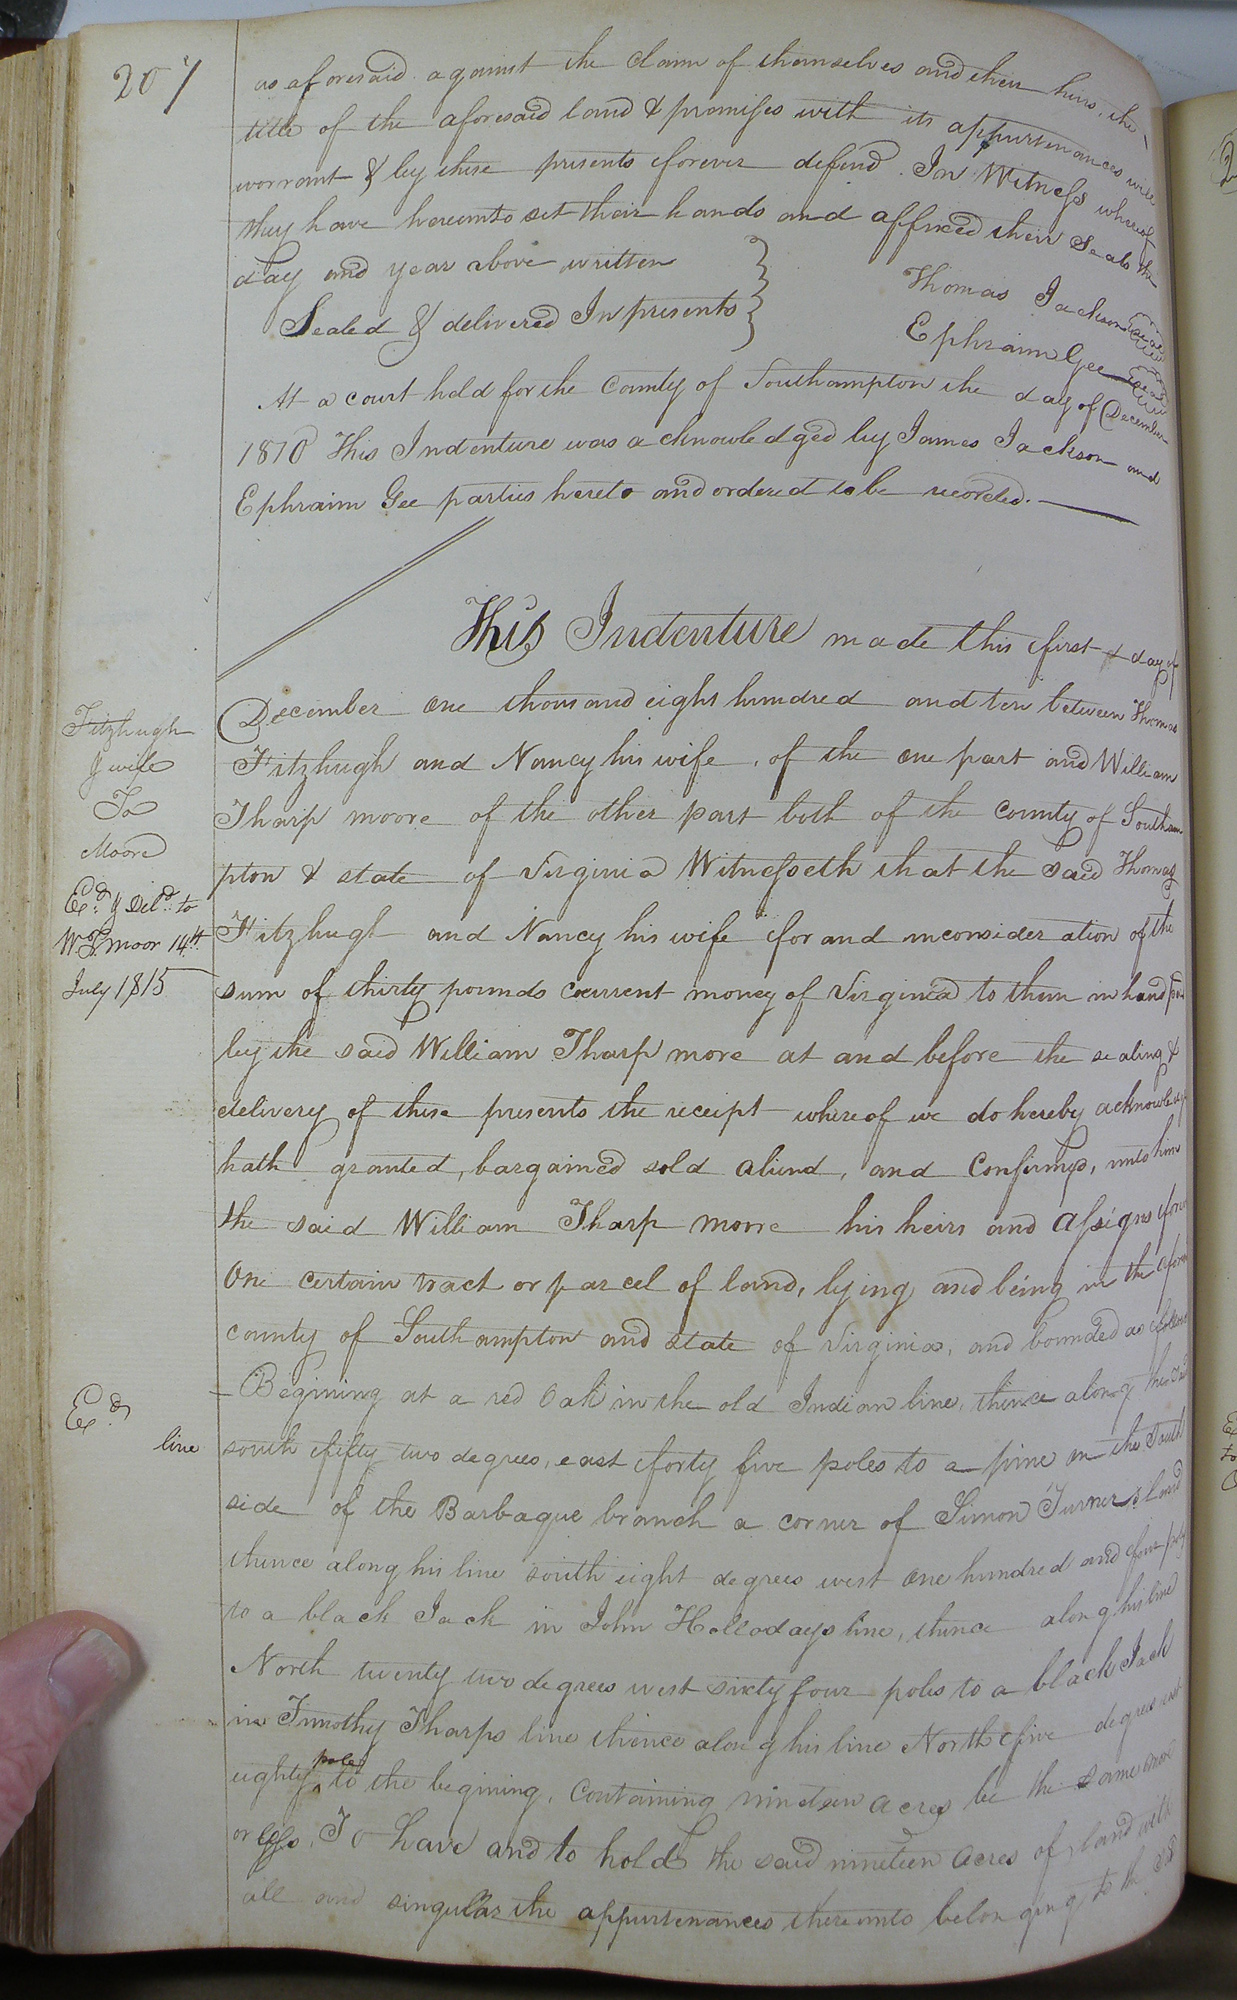 207
as aforesaid against the claim of themselves and their heirs, the
title of the aforesaid land & premises with its appurtenances will
warrant & by these presents forever defend. In Witness whereof
they have hereunto set their hands and affixed their Seals the
day and year above written
Thomas Jackson Seal
Sealed & delivered In presents
Ephraim Gee Seal
At a court held for the County of Southampton the day of December
1810 This Indenture was acknowledged by James Jackson and
Ephraim Gee parties hereto and ordered to be recorded.
This Indenture made this first day of
December One thousand eight hundred and ten between Thomas
Fitzhugh and Nancy his wife, of the one part and William
Tharp moore of the other part both of the county of Southam
pton & state of Virginia Witnesseth that the said Thomas
Fitzhugh and Nancy his wife for and inconsideration of the
sum of thirty pounds current money of Virginia to them in hand paid
by the said William Tharp more at and before the sealing &
delivery of these presents the receipt whereof we do hereby acknowledge
hath granted, bargained sold aliend, and Confirmd, unto him
the said William Tharp morre his heirs and Assigns forever
One certain tract or parcel of land, lying and being in the afore
county of Southampton and state of Virginia, and bounded as follows
Begining at a red Oak in the old Indian line, thence along the said
line south fifty two degrees, east forty five poles to a pine on the South
side of the Barbaque branch a corner of Simon Turner's land
thence along his line south eight degrees west One hundred and four poles
to a black Jack in John Holladays line, thence along his line
North twenty two degrees west sixty four poles to a black Jack
in Timothy Tharps line thence along his line North five degrees west
eighty poles to the begining, Containing nineteen acres be the same more
or less, To have and to hold the said nineteen acres of land with
all and singular the appurtenances thereunto belonging to the sd
Fitzhugh
& wife
To
Moore
Exd. & Deld. to
W. T. moor 14th
July 1815
Exd